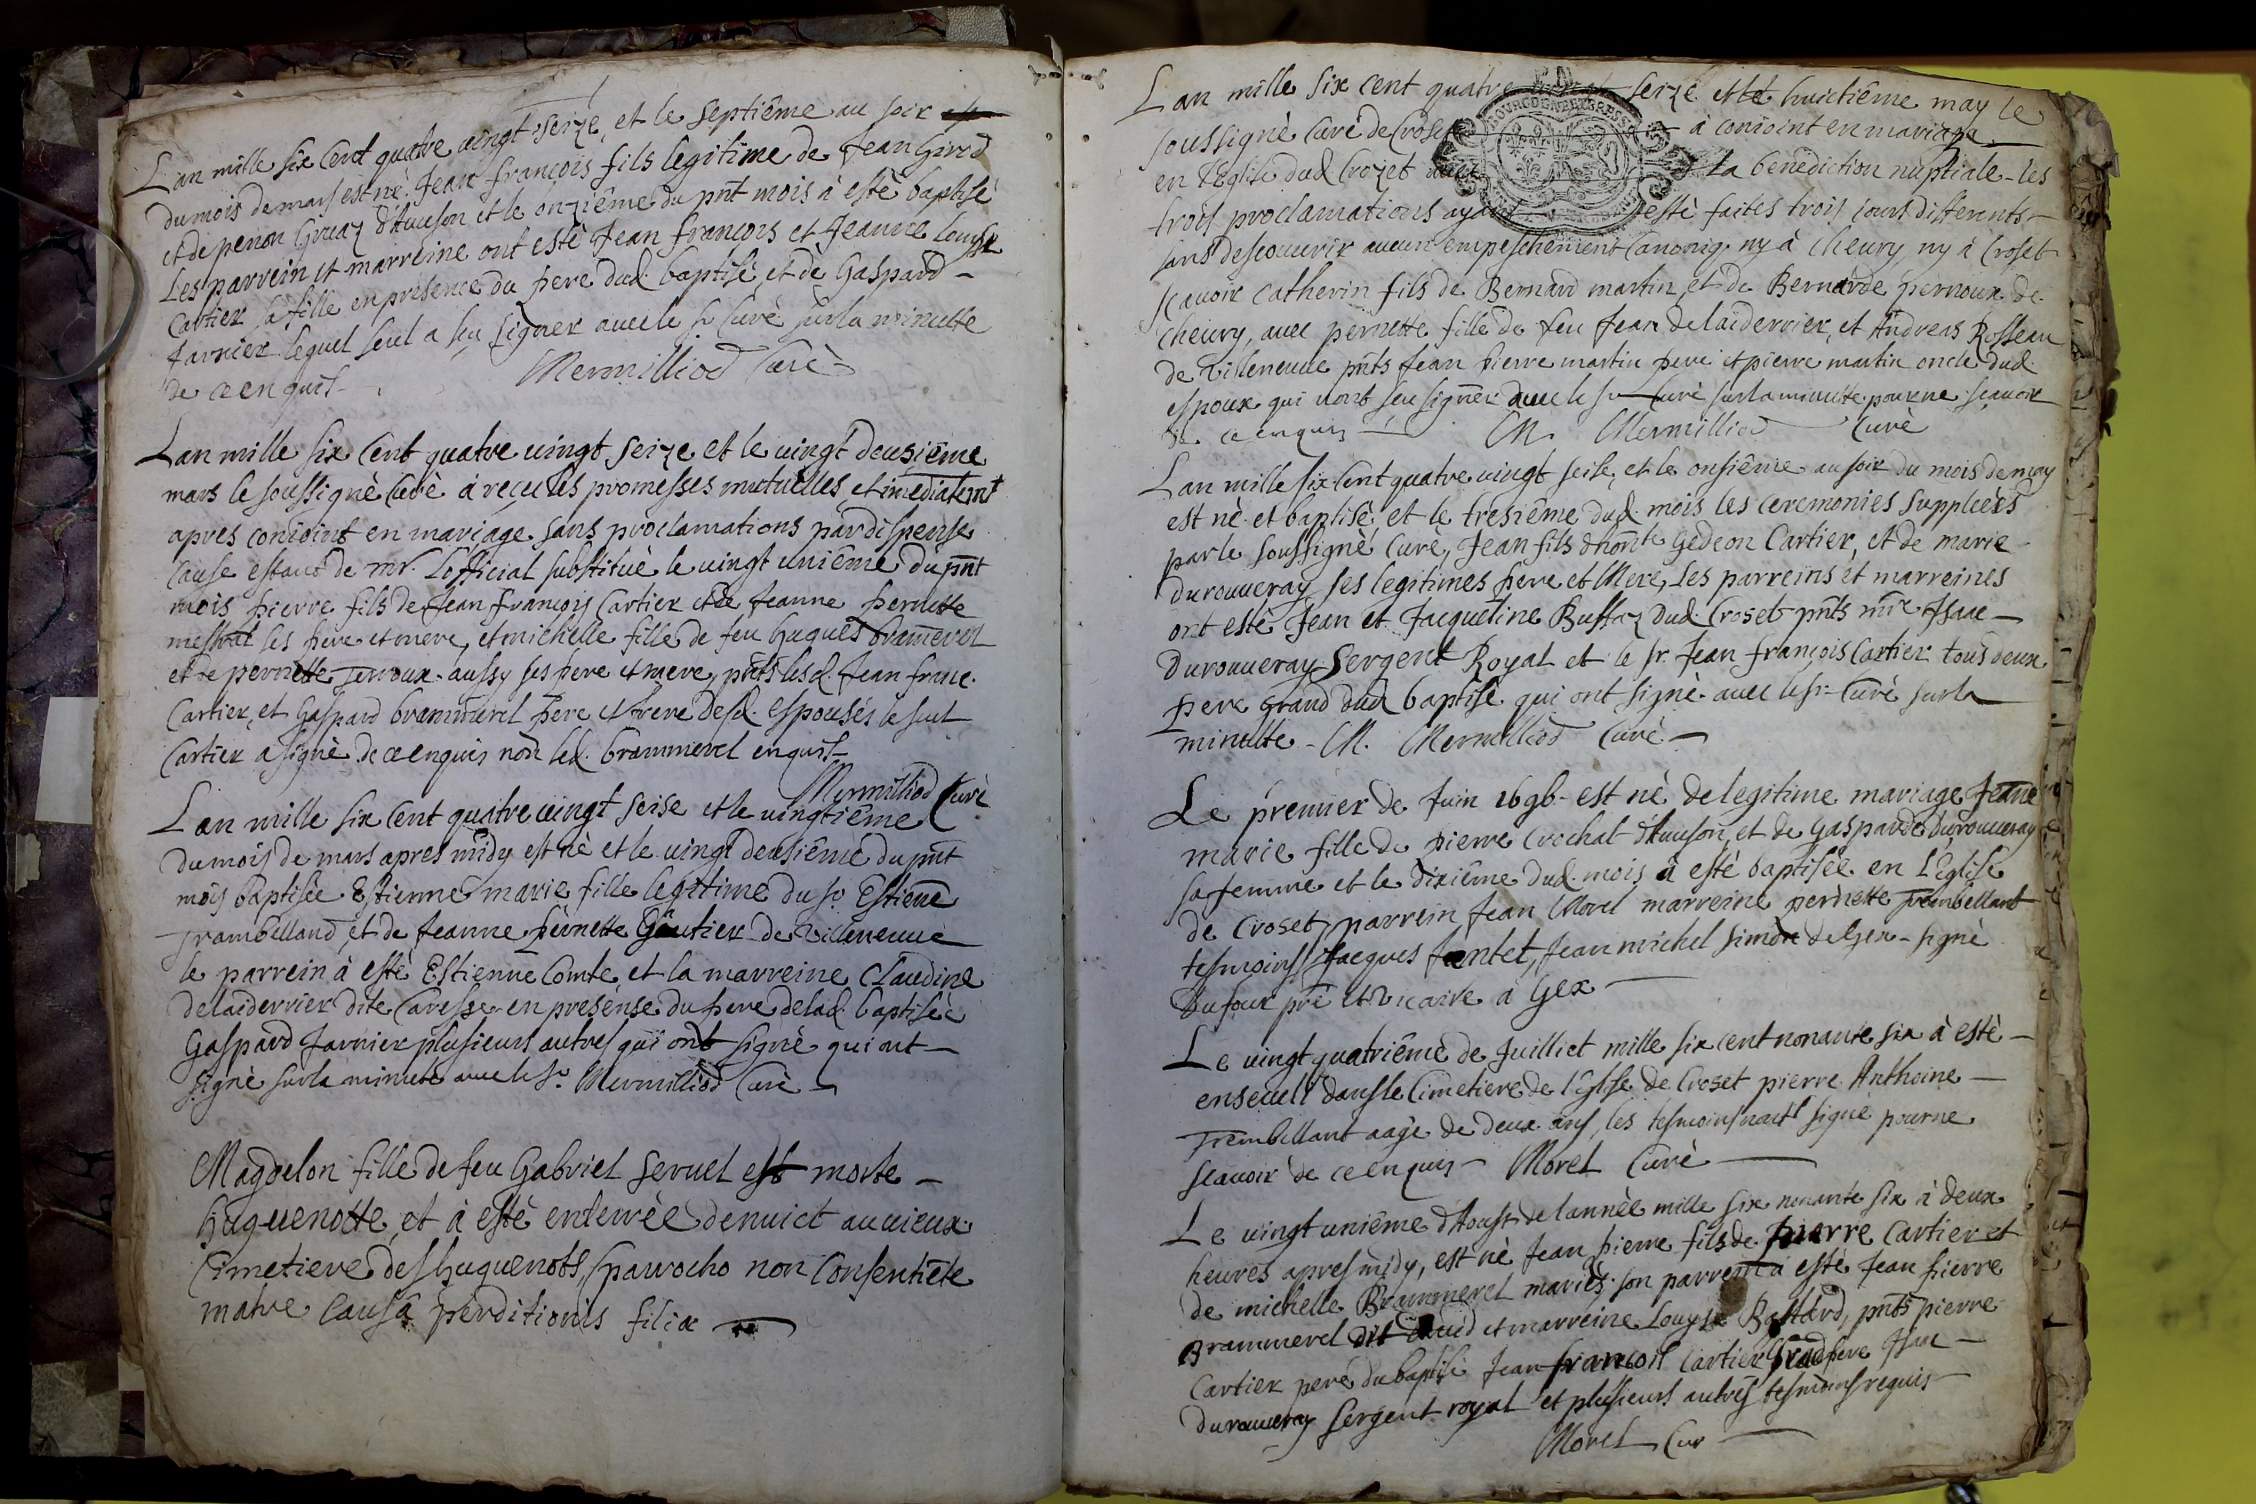 Lan mille six Cent quatre vingt seize, et le septiême au soir
du mois de mars est nè Jean françois fils legitime de Jean Girod
et de penon Gruaz d'Avuson et le onziême du pñt mois à estè baptisè
Les parrein et marreine ont estè Jean françois et Jeanne Louyse
Cartier sa fille en presence du pere dud. baptisè, et de Gaspard
Jarnier lequel seul a sçu signer avec le sr Curè sur la minutte
de ce enquis
Mermilliod Curè
Lan mille six Cent quatre vingt seize et le vingt deusiême
mars le soussignè Curè a reçu les promesses mutuelles et imediatemt
apres conioint en mariage sans proclamations par dispense
cause estant de mr. Lofficial substituè le vingt uniême du pñt
mois pierre fils de Jean françois Cartier et de Jeanne pernette
mestral ses pere et mere, et michelle fille de feu Hugues bramerel
et de pernette perroux aussy ses pere et mere, pñts lesd. Jean franc.
Cartier, et Gaspard brammerel pere et frere desd. espousés le seul
Cartier a signè de ce enquis non led. brammerel enquis
Mermilliod Curè
Lan mille six Cent quatre vingt seise et le vingtiême
du mois de mars apres midy est nè et le vingt deusiême du pñt
mois baptisée Estienne marie fille legitime du sr Estiene
Trambelland, et de Jeanne pernette Gautier de Villeneuve
le parrein à estè Estienne Comte et la marreine Claudine
delaiderrier dite Caresse en presense du pere delad. baptisèe
Gaspard Jarnier plusieurs autres qui ont signè qui ont
signè sur la minute avec le sr. Mermilliod Curè
Magdelon fille de feu Gabriel seruel est morte
huguenotte, et à estè enterrèe de nuict au vieux
Cimetiere des huguenots, parrocho non Consentiēte
matre Causâ perditionis filiæ
Lan mille six cent quatre vingt seize et le huictiême may le
soussignè Curè de Croset à conioint en mariage
en l'Eglise dud Crozet La benediction nuptiale les
trois proclamations ayant estè faites trois iours differents
sans descouvrir aucun empeschement Canoniq. ny à Cheury ny à Croset
scauoir Catherin fils de Bernard martin et de Bernarde pernoux de
Cheury, avec pernette fille de feu Jean delaiderrier, et Andreas Rosseau
de Villeneuve pñts Jean pierre martin pere et pierre martin oncle dud
espoux qui n'ont sçeu signer avec le sr Curè sur la minutte pour ne sçavoir
de ce enquis M. Mermilliod Curè
Lan mille six Cent quatre vingt seise, et le onsiême au soir du mois de may
est nè et baptisè et le tresiême dud mois les ceremonies supplèés
par le soussignè Curè, Jean fils d'honte Gedeon Cartier, et de marie
durouveray ses legitimes pere et Mere, Les parreins et marreines
ont estè Jean et Jacqueline Buffaz dud. Croset pñts mre Isaac
Durouveray Sergent Royal et le sr. Jean françois Cartier tous deux
pere grand dud baptisè qui ont signè avec le sr Curè sur la
minutte M. Mermilliod Curè
Le premier de Juin 1696 est nè de legitime mariage Jeane
marie fille de pierre Crochat d'Auuson, et de Gasparde durouveray
sa femme et le dixiême dud. mois à estè baptisèe en L'Eglise
de Croset, parrein Jean Morel marreine pernette Trembellant
tesmoins Jacques Jantet, Jean michel simon de Gex signè
Dufour pre et Vicaire à Gex
Le vingt quatriême de Juilliet mille six cent nonante six à estè
enseueli dans le Cimetiere de l'Eglise de Croset pierre Anthoine
Trembillant aagè de deux ans, les tesmoins n'ont signè pour ne
sçavoir de ce enquis Morel Curè
Le vingt uniême d'Aoust de l'annèe mille six nonante six à deux
heures apres midy, est nè Jean pierre fils de pierre Cartier et
de michelle Brammerel mariés, son parrein à estè Jean pierre
Brammerel dit et marreine Louyse Bastard, pñts pierre
Cartier pere du baptisè Jean françois Cartier Grad pere Isaac
durouveray sergent royal et plusieurs autres tesmoins requis
Morel Cur